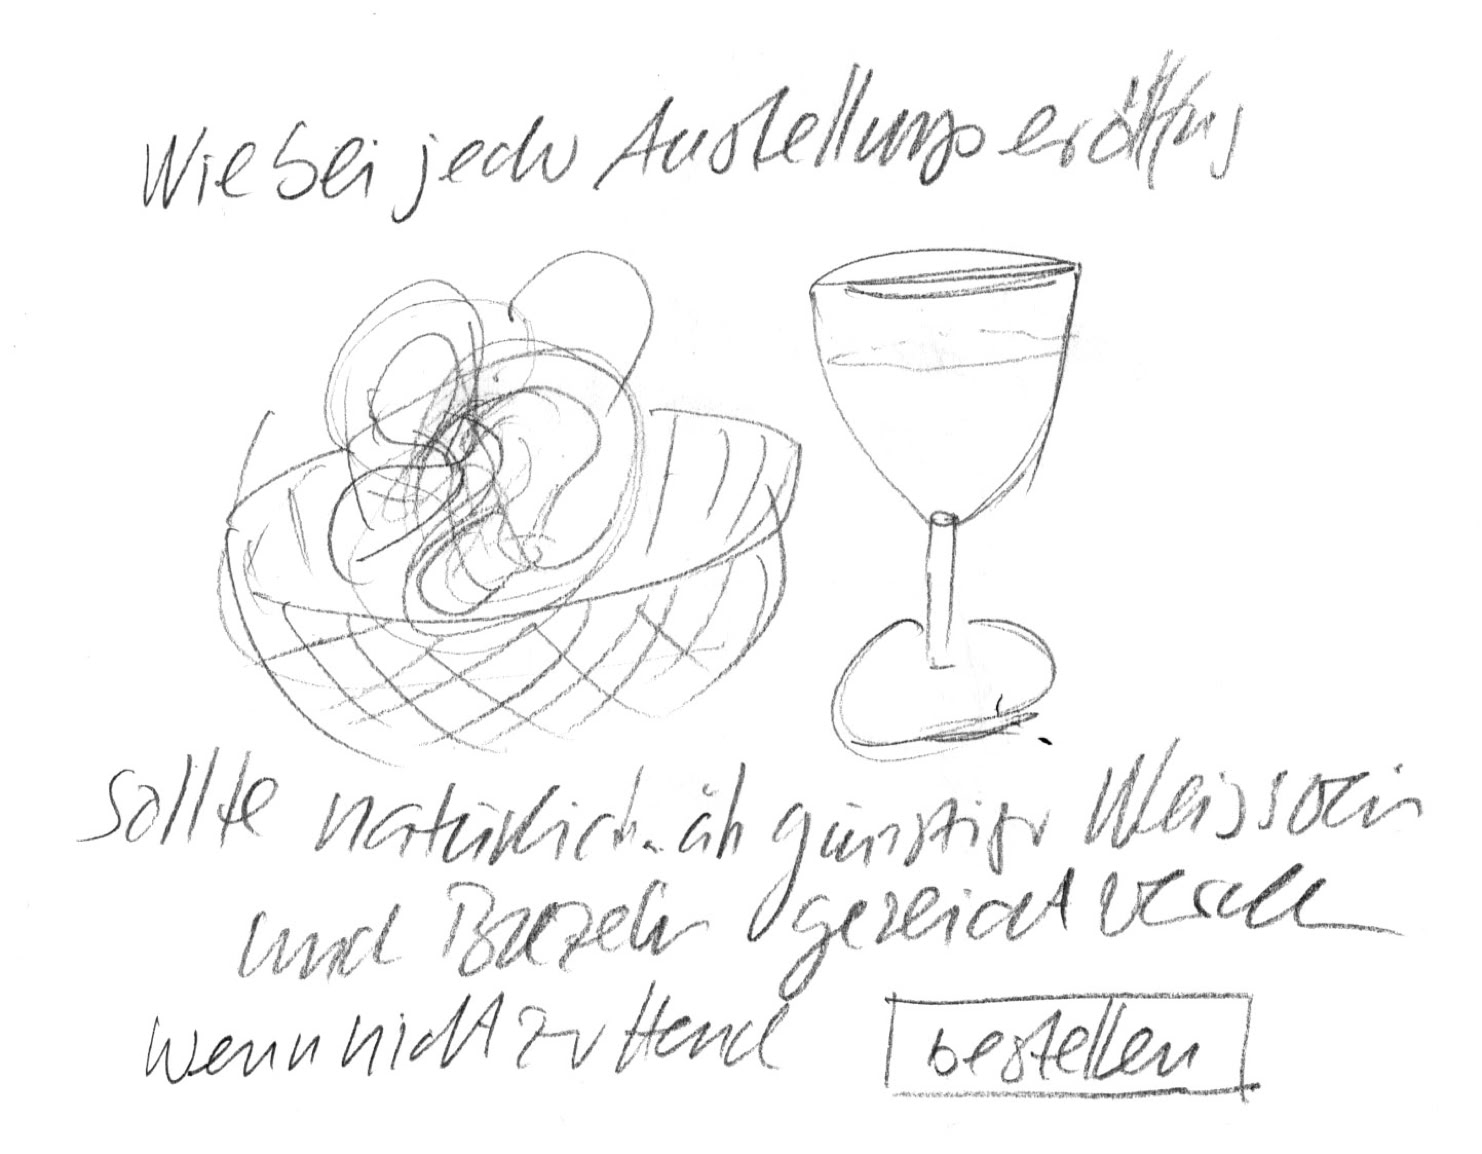 Wie bei jeder Ausstellungseröffng
sollte natürlich. äh günstiger Weisswein
und Brezeln gereicht werden
wenn nicht zur Hand bestellen